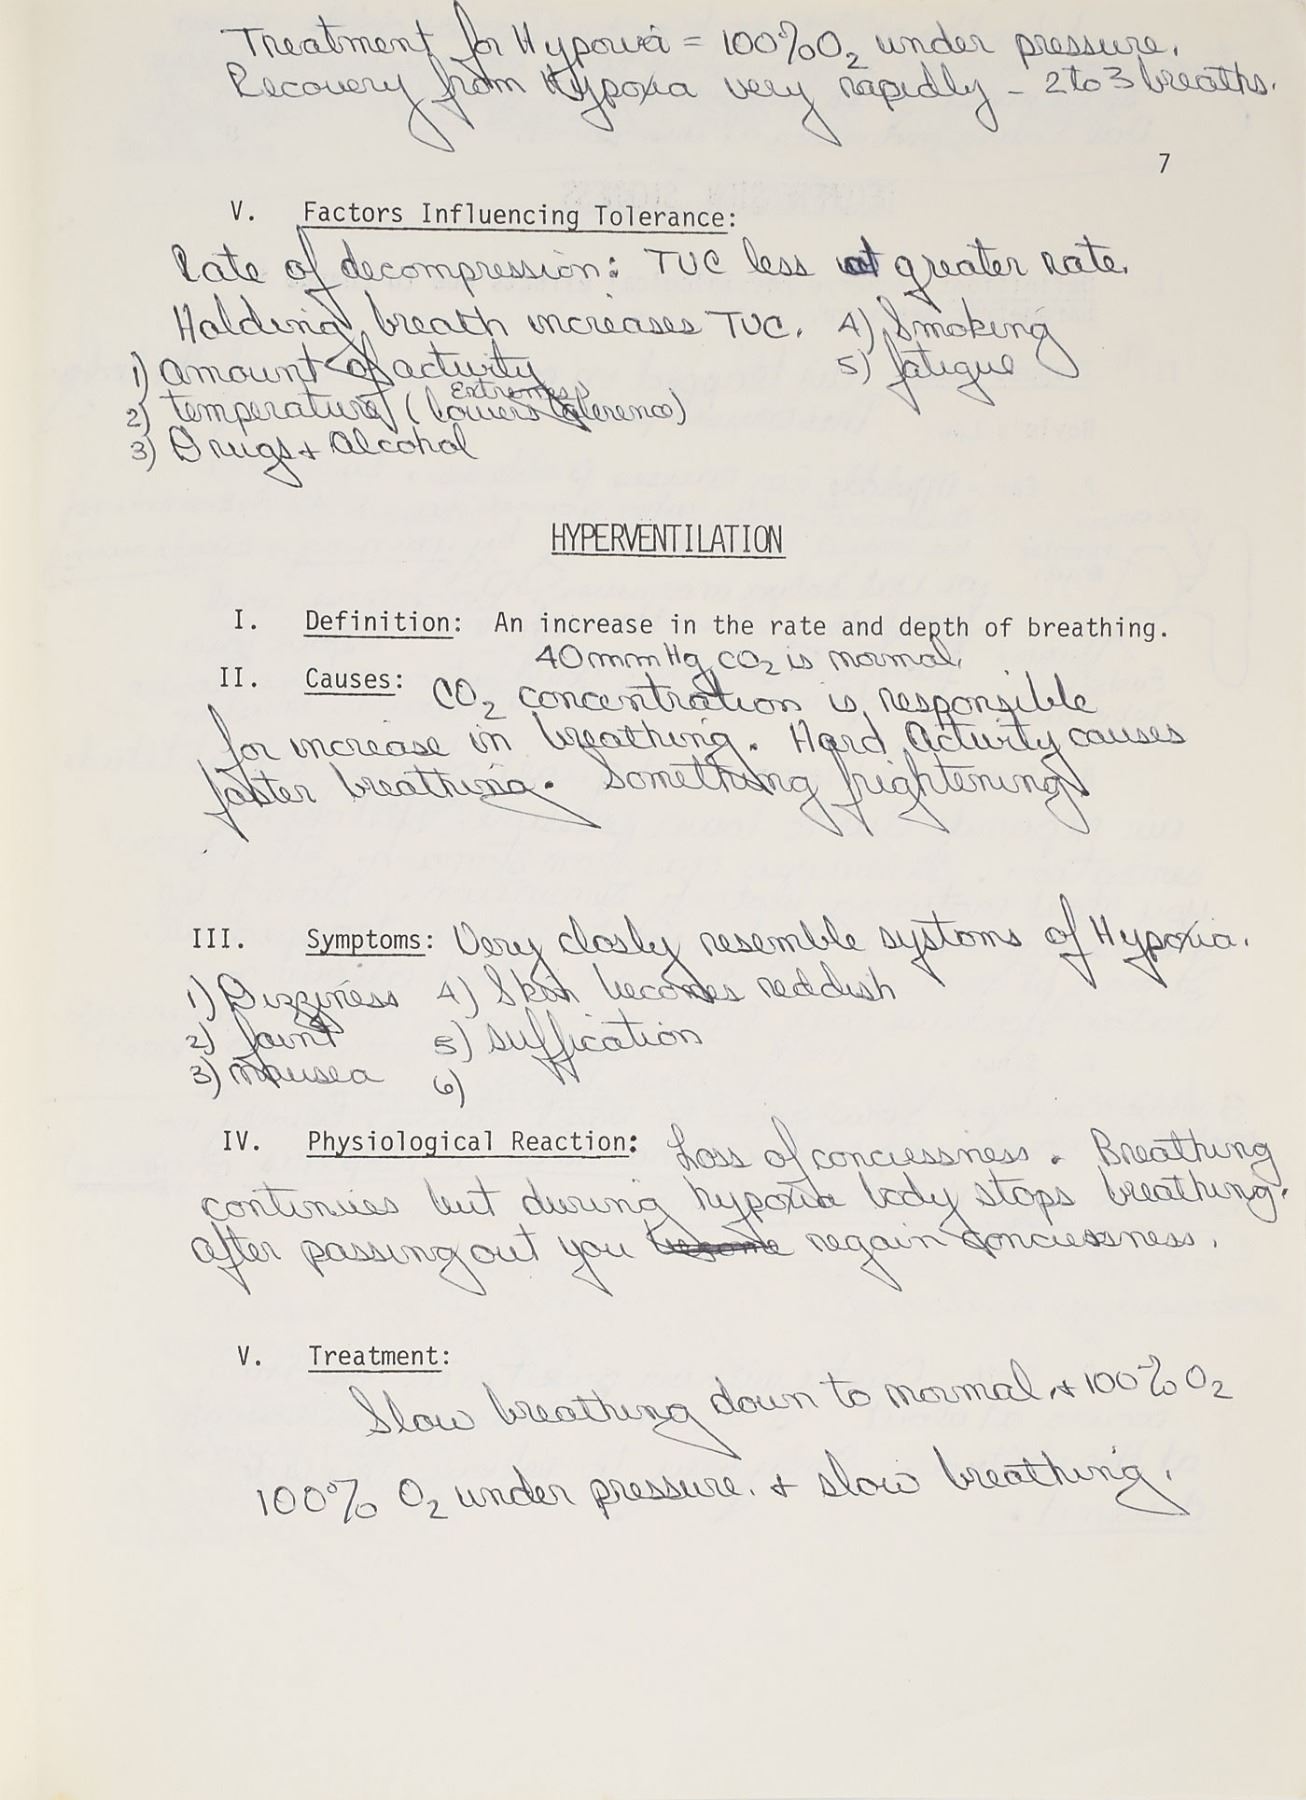 Treatment for Hypoxia = 100% O2 under pressure.
Recovery from Hypoxia very rapidly - 2 to 3 breaths.
7
V. Factors Influencing Tolerance:
Rate of decompression: TUC less at greater rate.
Holding breath increases TUC. 4) Smoking
1) Amount of activity 5) fatigue
Extremes
2) temperature (lowers tolerence)
3) Drugs + Alcohol
HYPERVENTILATION
I. Definition: An increase in the rate and depth of breathing.
40mm Hg CO2 is normal.
II. Causes: CO2 concentration is responsible
for increase in breathing. Hard Activity causes
faster breathing. Something frightening
III. Symptoms: Very closly resemble systoms of Hypoxia.
1) Dizziness 4) Skin becomes reddish
2) faint 5) suffication
3) nausea 6)
IV. Physiological Reaction: Loss of conciessness. Breathing
continues but during hypoxia body stops breathing.
After passing out you become regain conciessness.
V. Treatment:
Slow breathing down to normal + 100% O2
100% O2 under pressure. + slow breathing.